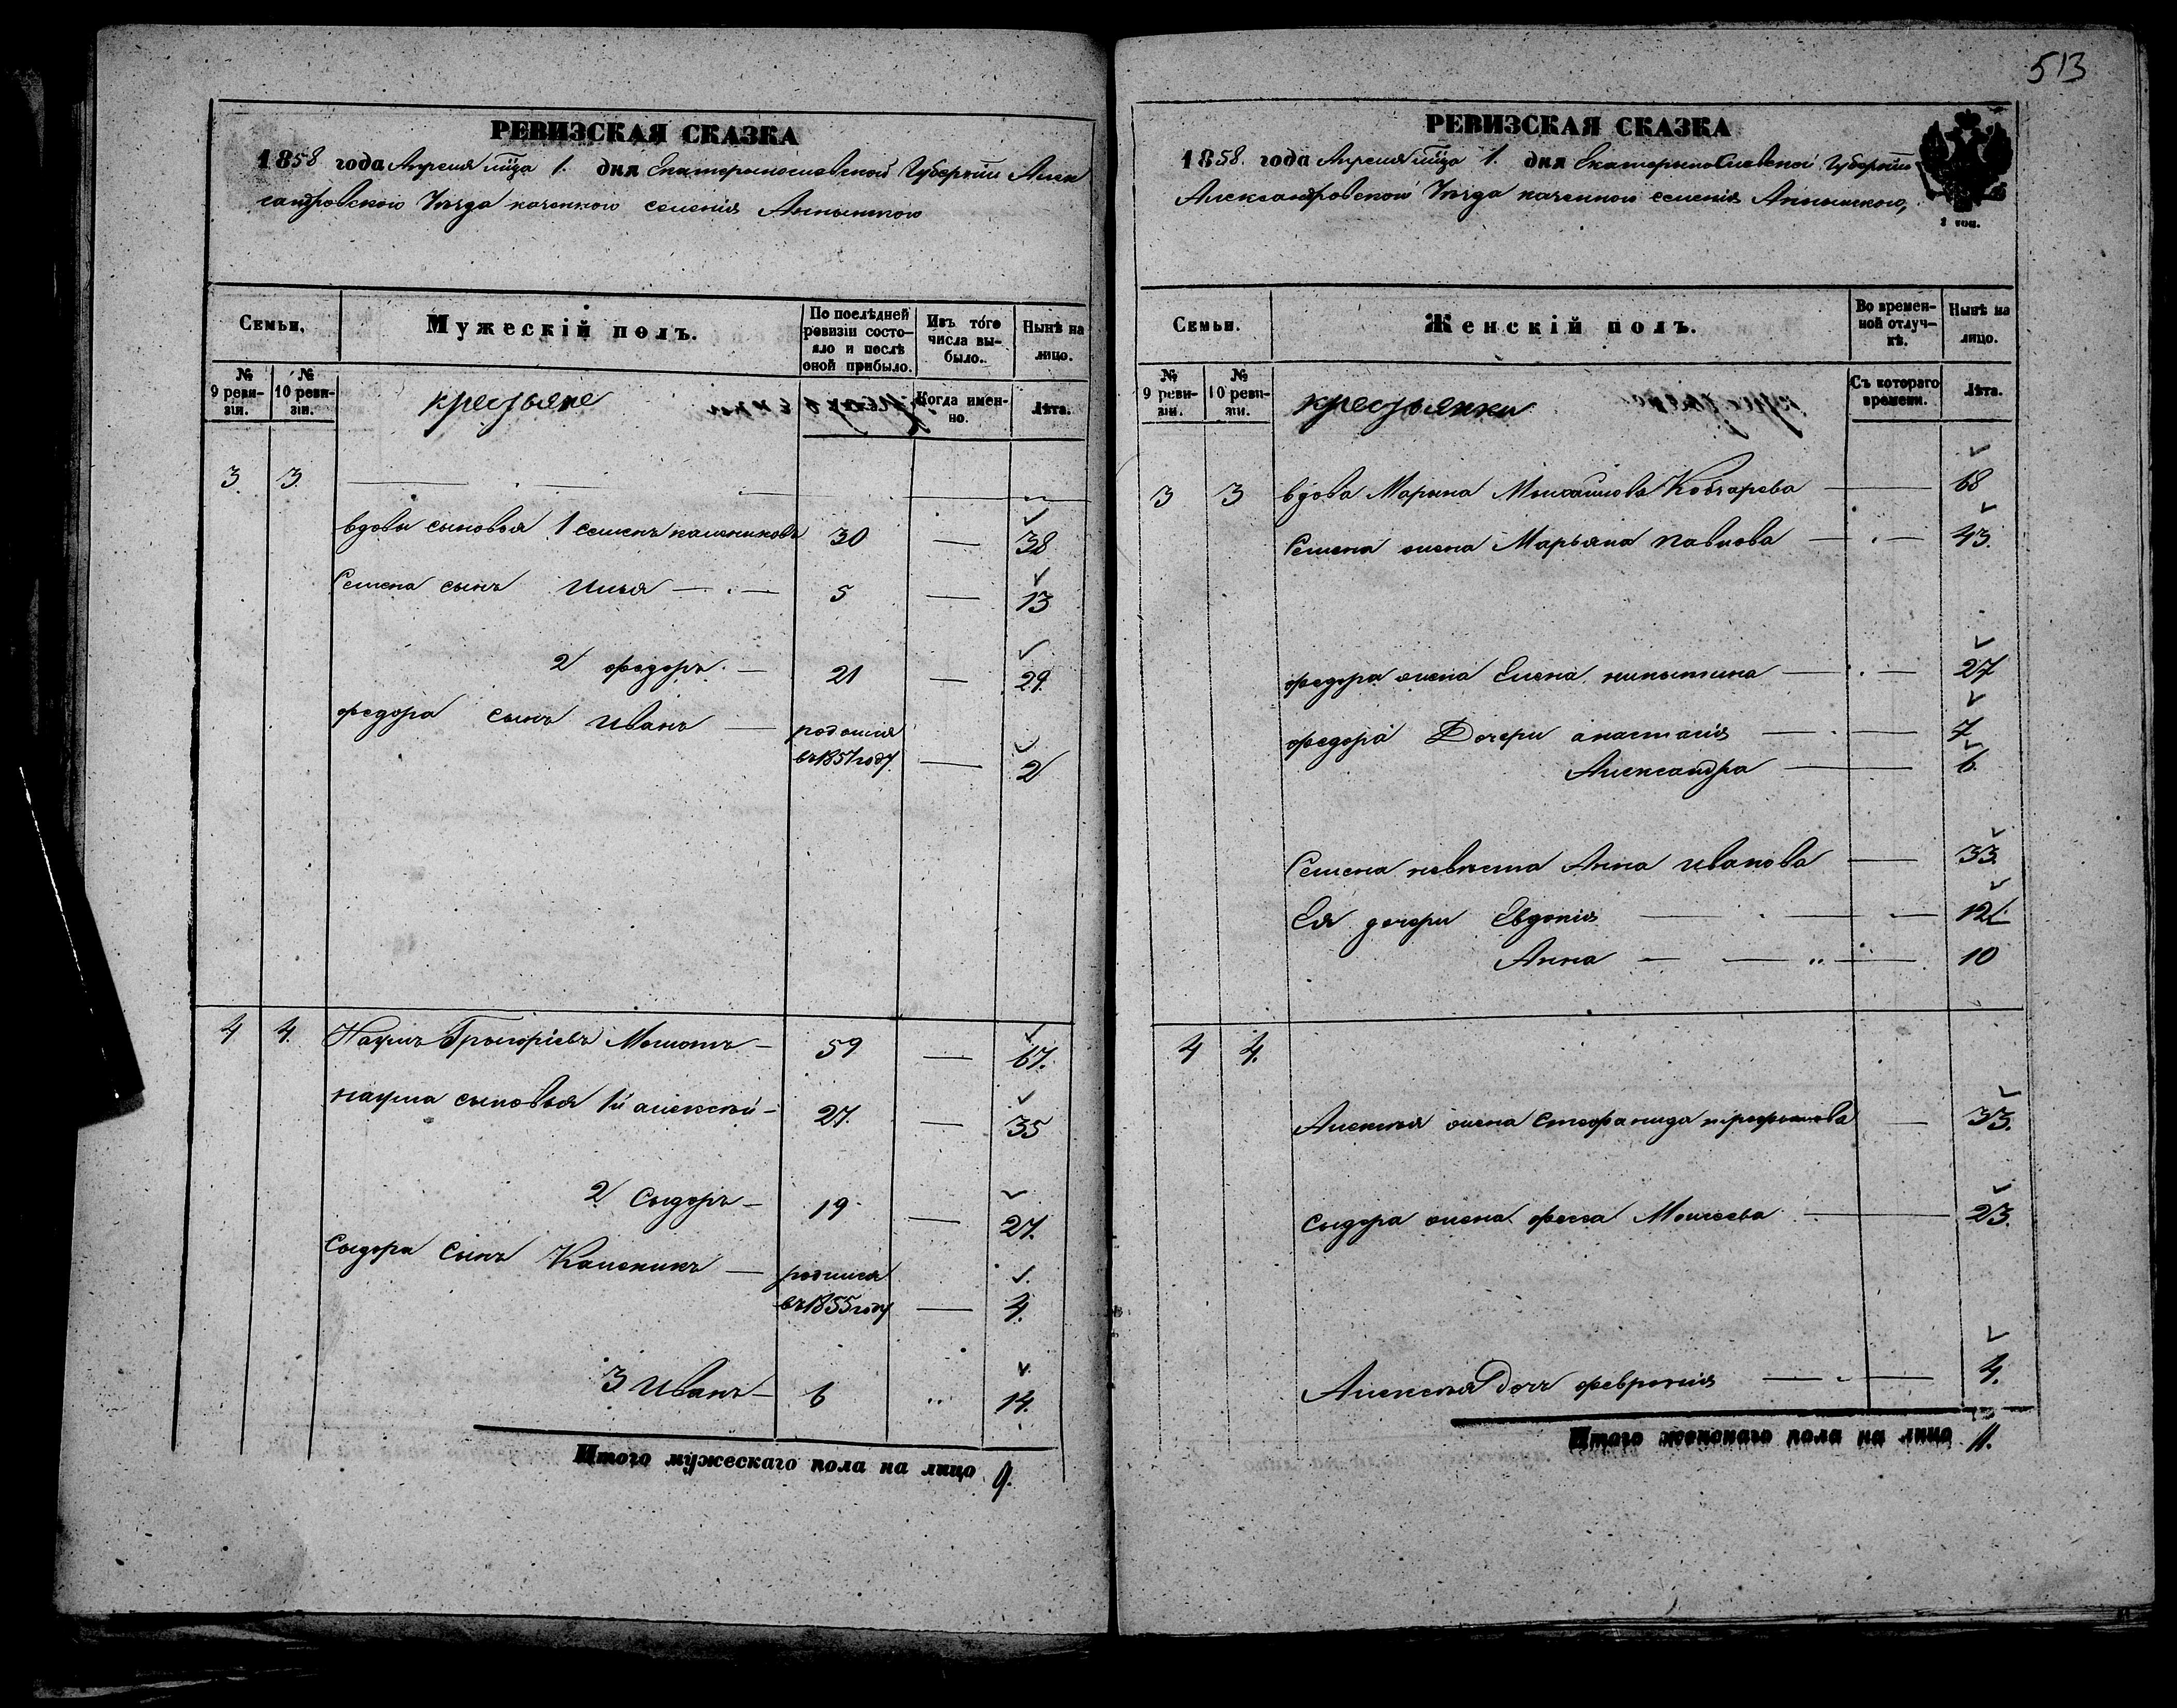 513
РЕВИЗСКАЯ СКАЗКА
1858 года Апреля мца 1. дня Екатеринославской Губернии Алек
сандровского Уѣзда казенного селения
Семьи. Мужескій полъ. По послѣдней ревизіи состояло и послѣ оной прибыло. Изъ того числа выбыло. Нынѣ на лицо.
№ 9 ревизіи. № 10 ревизіи. крестьяне Когда именно. Лѣта.
3. 3.
вдовы сыновья 1 семенъ 30 — 38
Семена сынъ Илья — 5 — 13
2 федоръ — 21 — 29.
федора сынъ иванъ — родился
въ 1857 году — 2
4 4. Наумъ Григоріевъ — 59 — 67.
наума сыновья 1й алексѣй — 27. — 35
2 Сыдоръ — 19 — 27.
Сыдора Сынъ — родился
въ 1855 году — 4.
3 Иванъ — 6 „ 14.
Итого мужескаго пола на лицо 9.
РЕВИЗСКАЯ СКАЗКА
1858. года Апреля мца 1. дня Екатериносlавской Губернии
Александровского Уѣзда казенного селения
Семьи. Женскій полъ. Во временной отлучкѣ. Нынѣ на лицо.
№ 9 ревизіи. № 10 ревизіи. крестьянки Съ котораго времени. Лѣта.
3 3 вдова Марина — 68
Семена жена Марьяна павлова — 43.
федора жена Елена — 27
федора Дочери анастасія — 7
Александра — 6.
Семена невѣстка Анна иванова — 33.
Ея дочери Евдокія — 12
Анна — 10
4 4.
Алексѣя жена Стефанида — 33.
Сыдора жена — 23.
Алексѣя Дочь февронія — 4.
Итого женскаго пола на лицо 11.